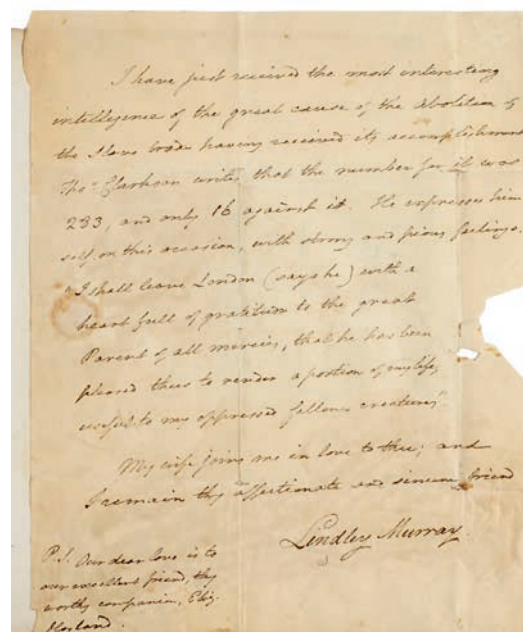 I have just received the most interesting
intelligence of the great cause of the Abolition of
the Slave trade having received its accomplishment
Thos. Clarkson writes that the number for it was
283, and only 16 against it. He expresses him
self, on this occasion, with strong and pious feelings.
"I shall leave London (says he) with a
heart full of gratitude to the great
Parent of all mercies, that he has been
pleased thus to render a portion of my life,
useful to my oppressed fellow creatures."
My wife joins me in love to thee; and
I remain thy affectionate and sincere friend
Lindley Murray.
P.S. Our dear love is to
our excellent friend, thy
worthy companion, Eliz.
Hoyland.